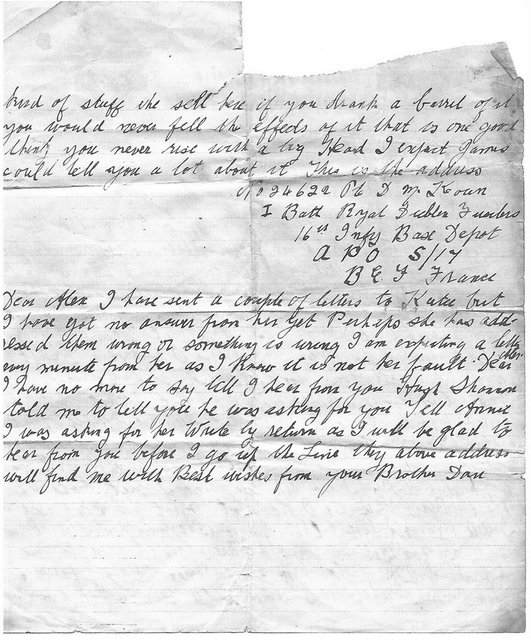 kind of stuff the sell here if you drank a barrel of it
you would never fell the effects of it that is one good
think you never rise with a big Head I expect James
could tell you a lot about it This is the address
No 24622 Pt D Mc Koun
I Batt Royal Dublin Fusiliers
16th Infy Base Depot
A P O S/17
B E F France
Dear Alex I have sent a couple of letters to Katie but
I have got no answer from her yet Perhaps she has add-
ressed them wrong or something is wrong I am expecting a letter
evry minute from her as I know it is not her fault. Dear Alex
I have no more to say till I hear from you Hugh Shannon
told me to tell you he was asking for you Tell Annie
I was asking for her Write by return as I will be glad to
hear from you before I go up the Line they above address
will find me with Best wishes from your Brother Dan